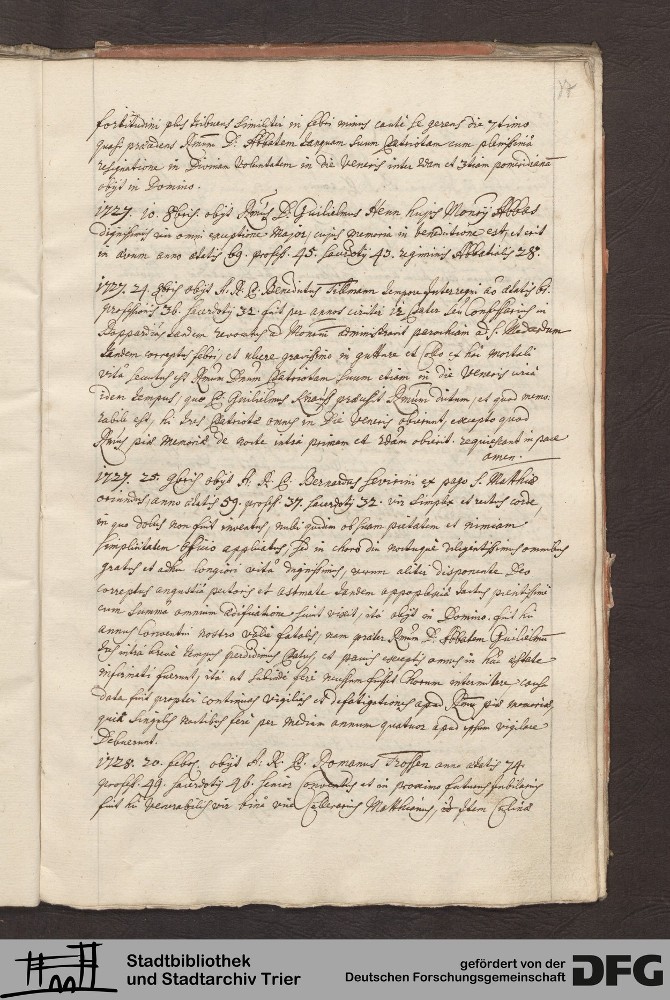 17
fortitudini plus tribuens similiter in febri minus cautè se gerens die 7timo
quasi praecedens Rmum D. Abbatem tanquam suum Patriotam cum plenissimâ
resignatione in Divinam voluntatem in die Veneris inter 2dam et 3tiam pomeridianam
obijt in Domino.
1727. 10. 8bris. obijt Rmus D. Guilielmus Henn hujus Monrij Abbas
dignissimus vir omni exceptione major, cujus memoria in benedictione est, et erit
in aevum anno aetatis 69. profess. 45. sacerdotij 43. regiminis Abbatialis 28.
1727. 24. 8bris obijt A. R. P. Benedictus Tillmann tempore Interregni aõ aetatis 61.
professionis 36. sacerdotij 32. fuit per annos circiter 12 Pater seu Confessarius in
tandem revocatus ad Monrium administravit parochiam ad S. Medardum
tandem correptus febri, et ulcere gravissimo in gutture et collo ex hac mortali
vitâ secutus est Rmum Dnum Patriotam suum etiam in die Veneris
idem tempus, quo P. Guilielmus praecessit Rmum dictum, et quod memo-
rabile est, hi tres Patriotae omnes in die Veneris obierunt, excepto quod
Rmus piae memoriae de nocte intra primam et 2dam obierit. requiescant in pace
amen.
1727. 25. 9bris obijt A. R. P. Bernardus Severini ex pago S. Matthiae
oriundus, anno aetatis 59. profess. 37. sacerdotij 32. vir simplex et rectus corde,
in quo dolus non fuit inventus, nulli quidem ob suam pietatem et nimiam
simplicitatem officio applicatus, sed in choro diu noctuque diligentissimus omnibus
gratus et adhuc longiori vitâ dignissimus, verum aliter disponente Deo
correptus angustiâ pectoris et astmate tandem appoplexiâ tactus pientissimè
cum summa omnium aedificatione sicut vixit, ita obijt in Domino. fuit hic
annus Conventui nostro valde fatalis, nam praeter Rmum D. Abbatem Guilielmum
tres intra breve tempus perdidimus Patres, et paucis exceptis omnes in hac aestate
infirmati fuerunt, ita ut subinde ferè necessum fuisset Chorum intermittere causa
data fuit propter continuas vigilias et defatigationes apud Rmum piae memoriae,
quia singulis noctibus ferè per medium annum quatuor apud ipsum vigilare
debuerunt.
1728. 20. febr. obijt A. R. P. Romanus Trossen anno aetatis 74.
profess. 49. sacerdotij 46. senior Conventus et in proximo futurus jubilarius
fuit hic venerabilis vir binâ vice Cellerarius Matthianus, item Culinae
Stadtbibliothek
und Stadtarchiv Trier
gefördert von der
Deutschen Forschungsgemeinschaft
DFG